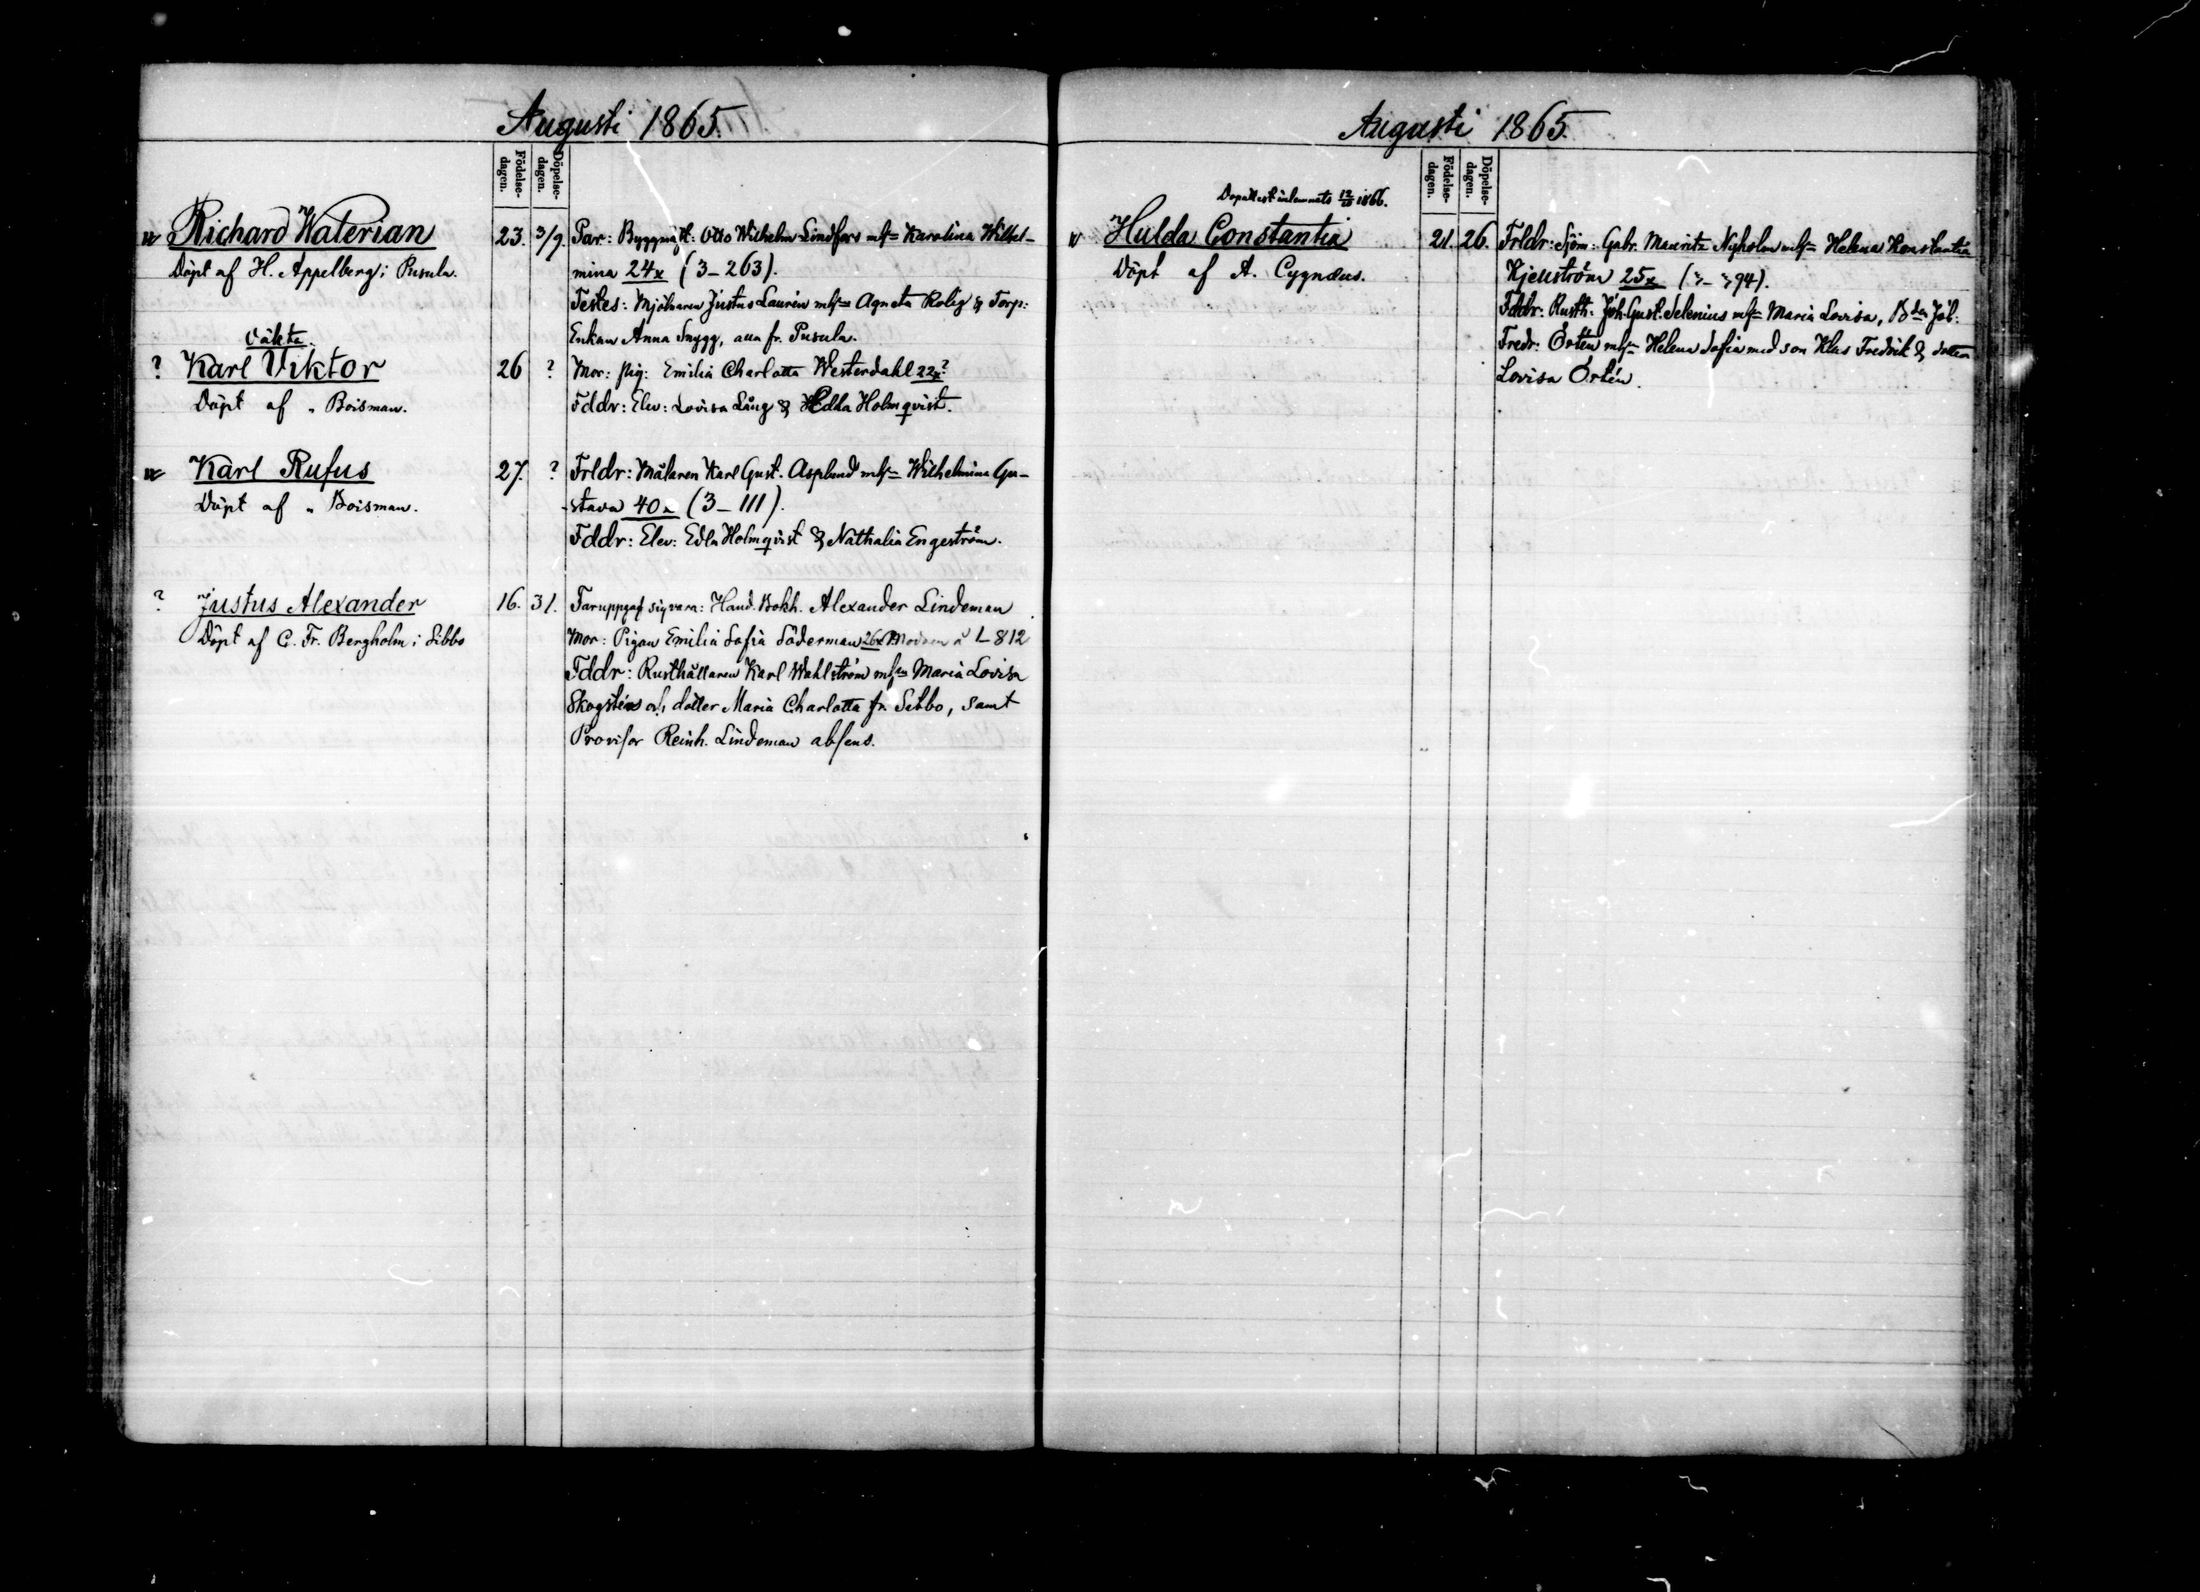 Augusti 1865.
Födelse-dagen.
Döpelse-dagen.
Richard Walerian 23. 3/9 Par: Byggmäst: Otto Wilhelm Lindfors mhu Karolina Wilhel-
Döpt af H. Appelberg i Pusula. mina 24x (3-263).
Testes: Mjölnaren Justus Laurén mhu Agneta Rolig & Torp:
Enkan Anna Snygg, alla fr. Pusula.
Oäkta.
? Karl Viktor 26 ? Mor: pig: Emilia Charlotta Westerdahl 22x?
Döpt af „ Boisman. Fddr: Elev: Lovisa Lång & Edla Holmqvist.
Karl Rufus 27. ? Frldr: Målaren Karl Gust. Asplund mhu Wilhelmina Gu-
Döpt af „ Boisman. stava 40x (3-111).
Fddr: Elev: Edla Holmqvist & Nathalia Engeström.
? Justus Alexander 16. 31. Far uppgaf sig vara: Hand. Bokh. Alexander Lindeman
Döpt af C. Fr. Bergholm i Sibbo Mor: Pigan Emilia Sofia Söderman 26x Modren å L 812
Fddr: Rusthållaren Karl Wahlström mhu Maria Lovisa
Skogsténs och dotter Maria Charlotta fr. Sibbo, samt
Provisor Reinh. Lindeman absens.
Augusti 1865.
Födelse-dagen.
Döpelse-dagen.
Dopattest inlemnats 1866.
Hulda Constantia 21. 26. Frldr: Sjöm: Gabr. Mauritz Nyholm mhu Helena Konstantia
Döpt af A. Cygnæus. Kjellström 25x (3-394).
Fddr: Rusth: Joh. Gust. Selenius mhu Maria Lovisa, Bden Joh:
Fredr: Örtén mhu Helena Sofia med son Klas Fredrik & dotter
Lovisa Örtén.